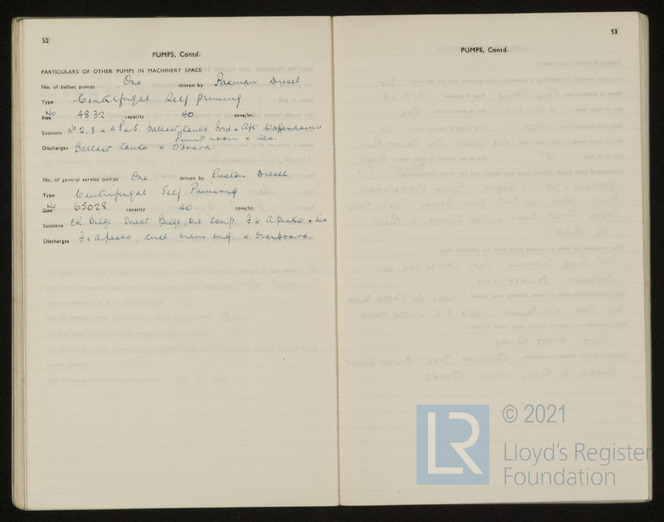 52
PUMPS, Contd.
PARTICULARS OF OTHER PUMPS IN MACHINERY SPACE
No. of ballast pumps One driven by Paxman Diesel
Type Centrifugal Self priming
No Size 4832 capacity 40 tons/hr.
Suctions No 2, 3 & 4 P & S. Ballast tanks Ford & Aft Cofferdams
Pump room & Sea
Discharges Ballast tanks & O'board.
No. of general service pumps One. driven by Ruston Diesel
Type Centrifugal Self Priming
No Size 65028 capacity 40 tons/hr.
Suctions ER Bilge Direct Bilge, Oil comp. F & A peaks & Sea
Discharges F & A peaks, main eng. & Overboard.
53
PUMPS, Contd.
LR © 2021
Lloyd's Register
Foundation